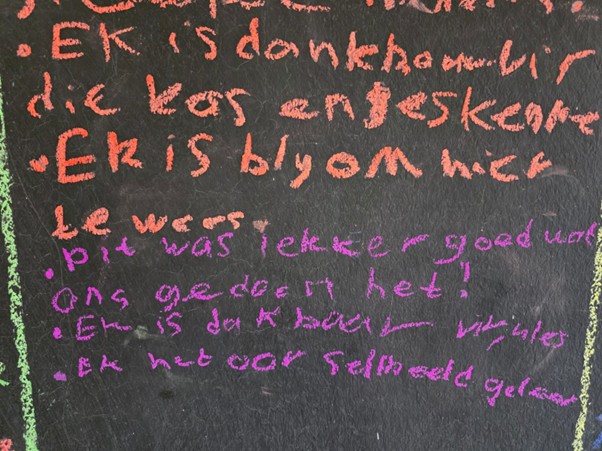 • EK is dankbaar vir
die kos en geskenke
• EK is bly om hier
te wees.
• Dit was lekker goed wat
ons gedoen het!
• EK is dakbaar vir alles
• EK het oor selfbeeld geleer